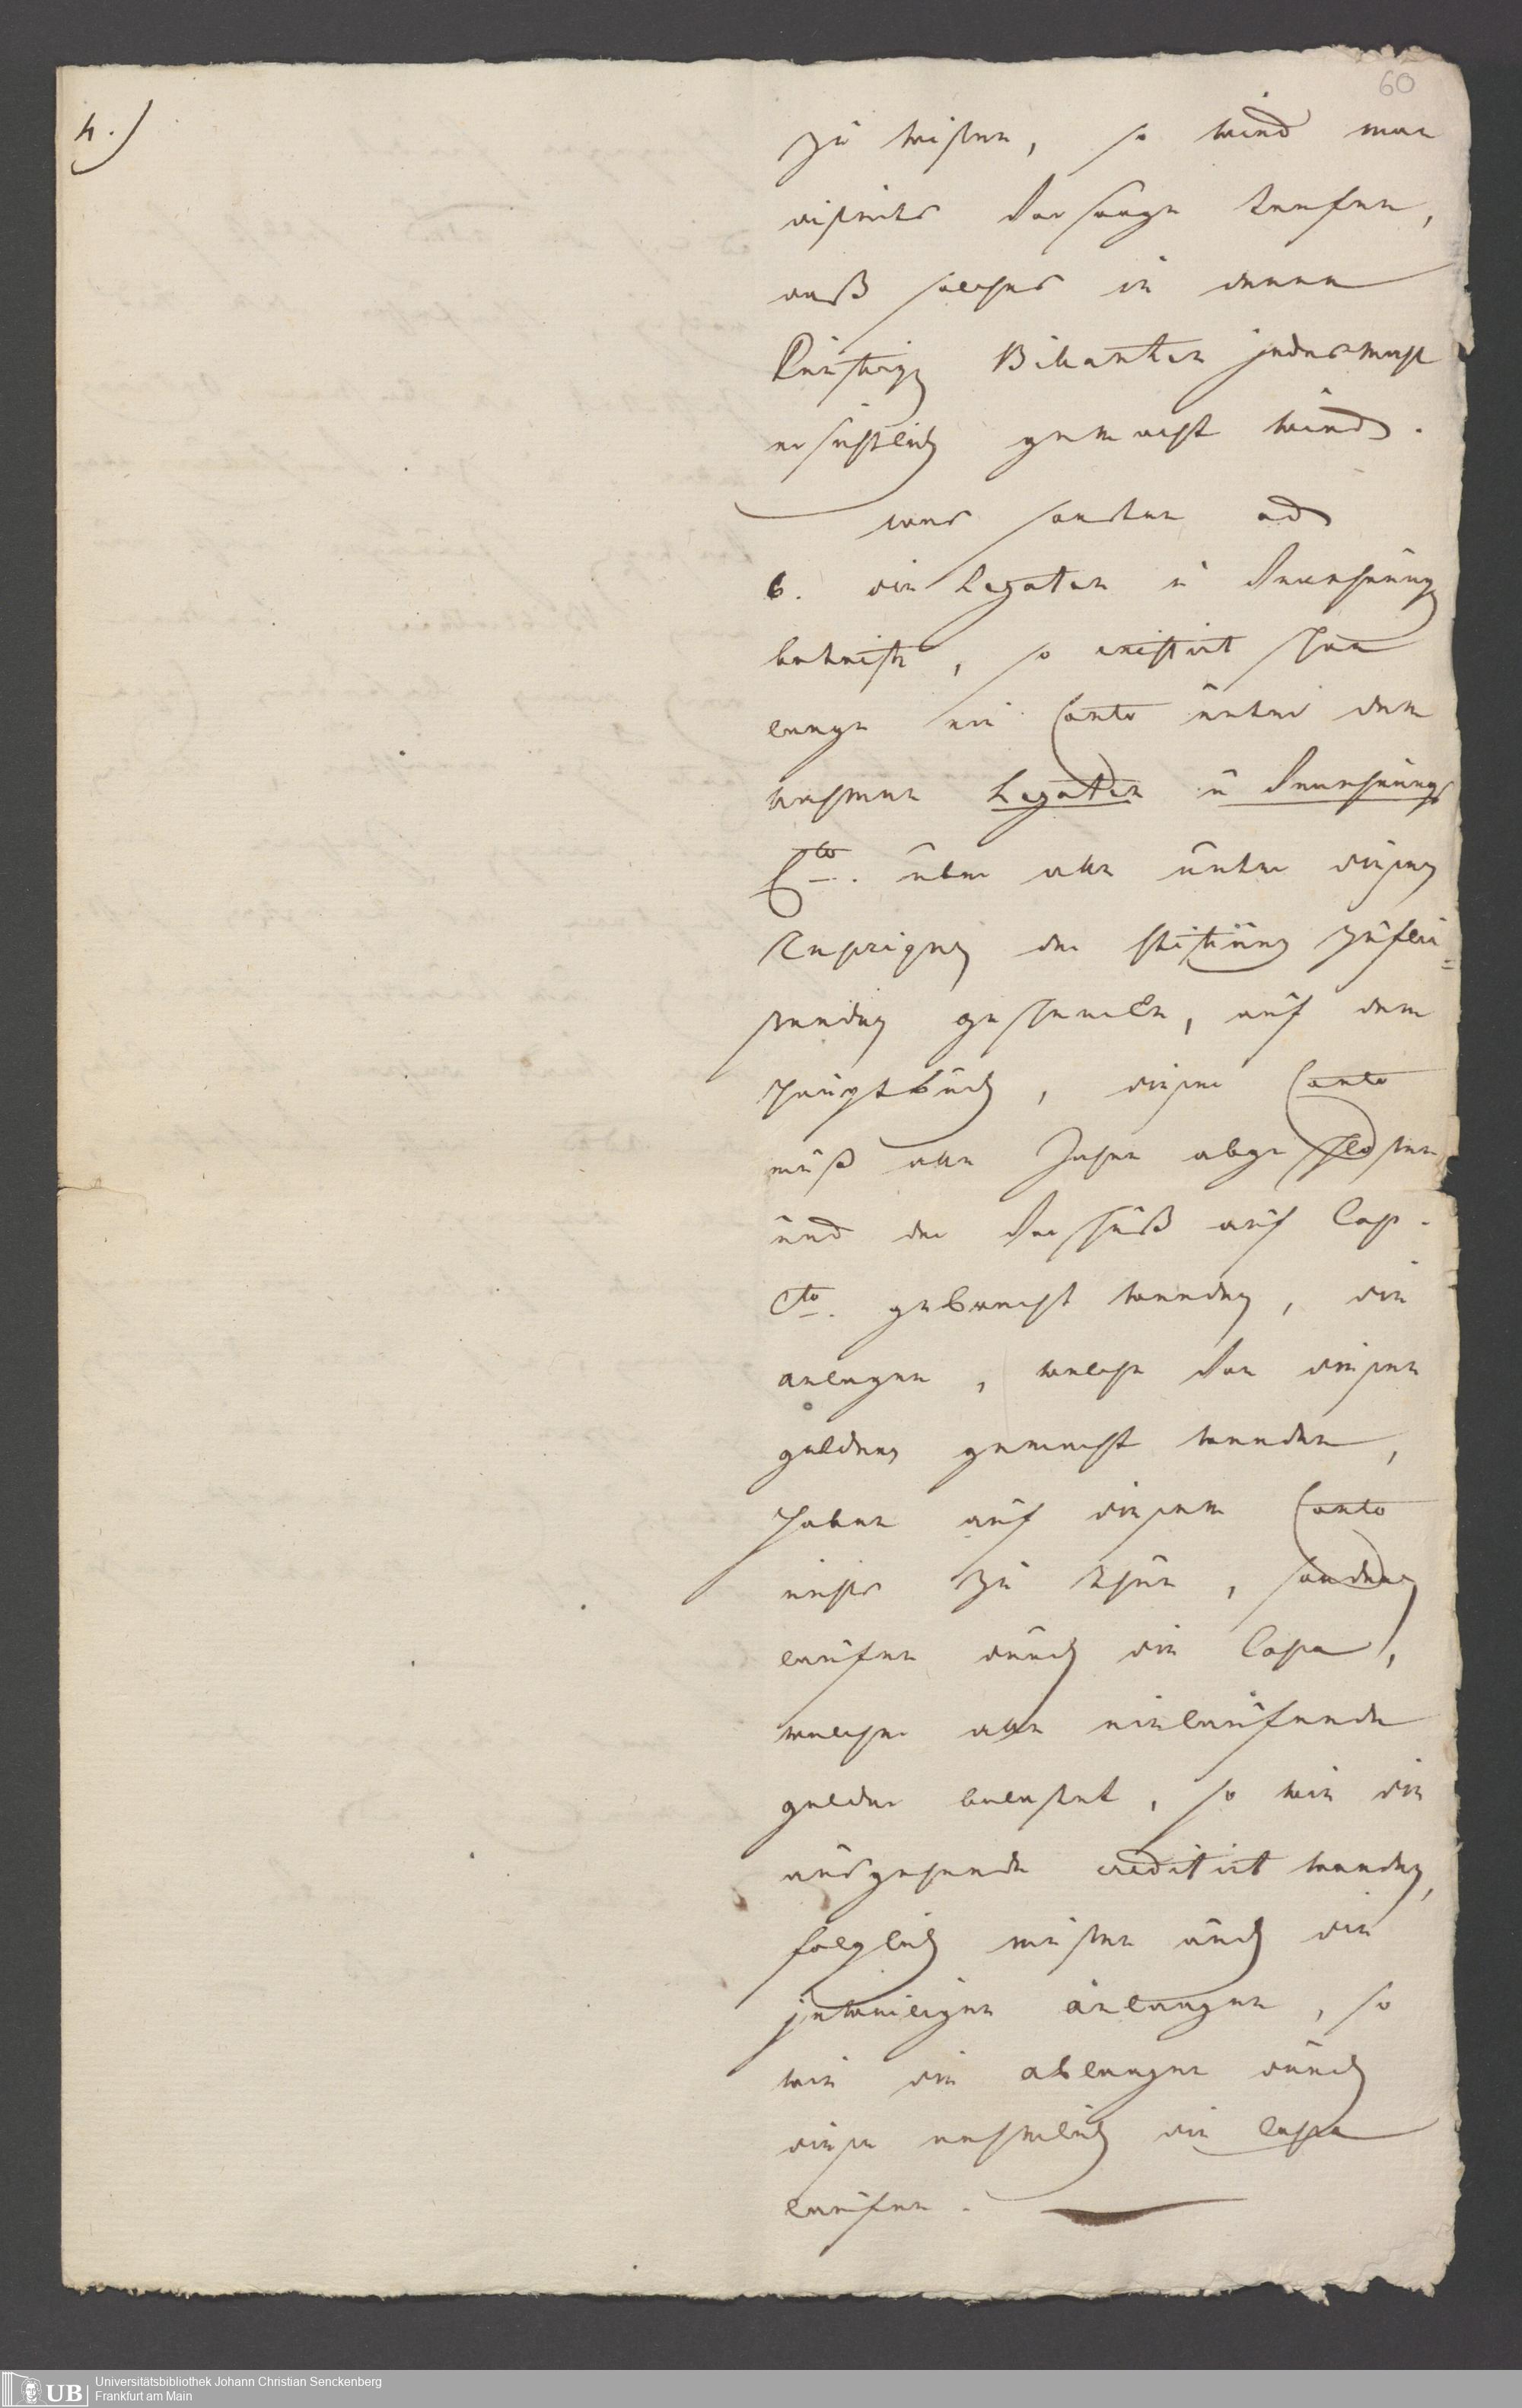 60
4.)
zu wissen, so wird man
disseits dar sorge tragen,
daß solches in denen
künftig Bilantzen jedesmahl
ersichtlich gemacht wird.
was sonsten ad
6. die Legaten u Schenkung
betrifft, so existirt schon
lange ein Conto unter dem
nahmen Legaten u Schenkungs
Cto. über alle unter diesen
der stiftung zuflie=
senden, auf dem
Hauptbuch, dieser Conto
muß alle Jahr abgeschlossen
und der auf Cap.
Cto. gebracht werden, die
anlagen, welche von diesen
geldern gemacht werden,
haben auf diesem Conto
nichts zu thun, sondern
laufen durch die Cassa,
welche alle einlaufende
gelder belastet, so wie die
ausgehende creditirt werden,
folglich müssen auch die
jeweiligen anlangen, so
wie die ablangen durch
diese nehmlich die Cassa
laufen.
UB
Universitätsbibliothek Johann Christian Senckenberg
Frankfurt am Main